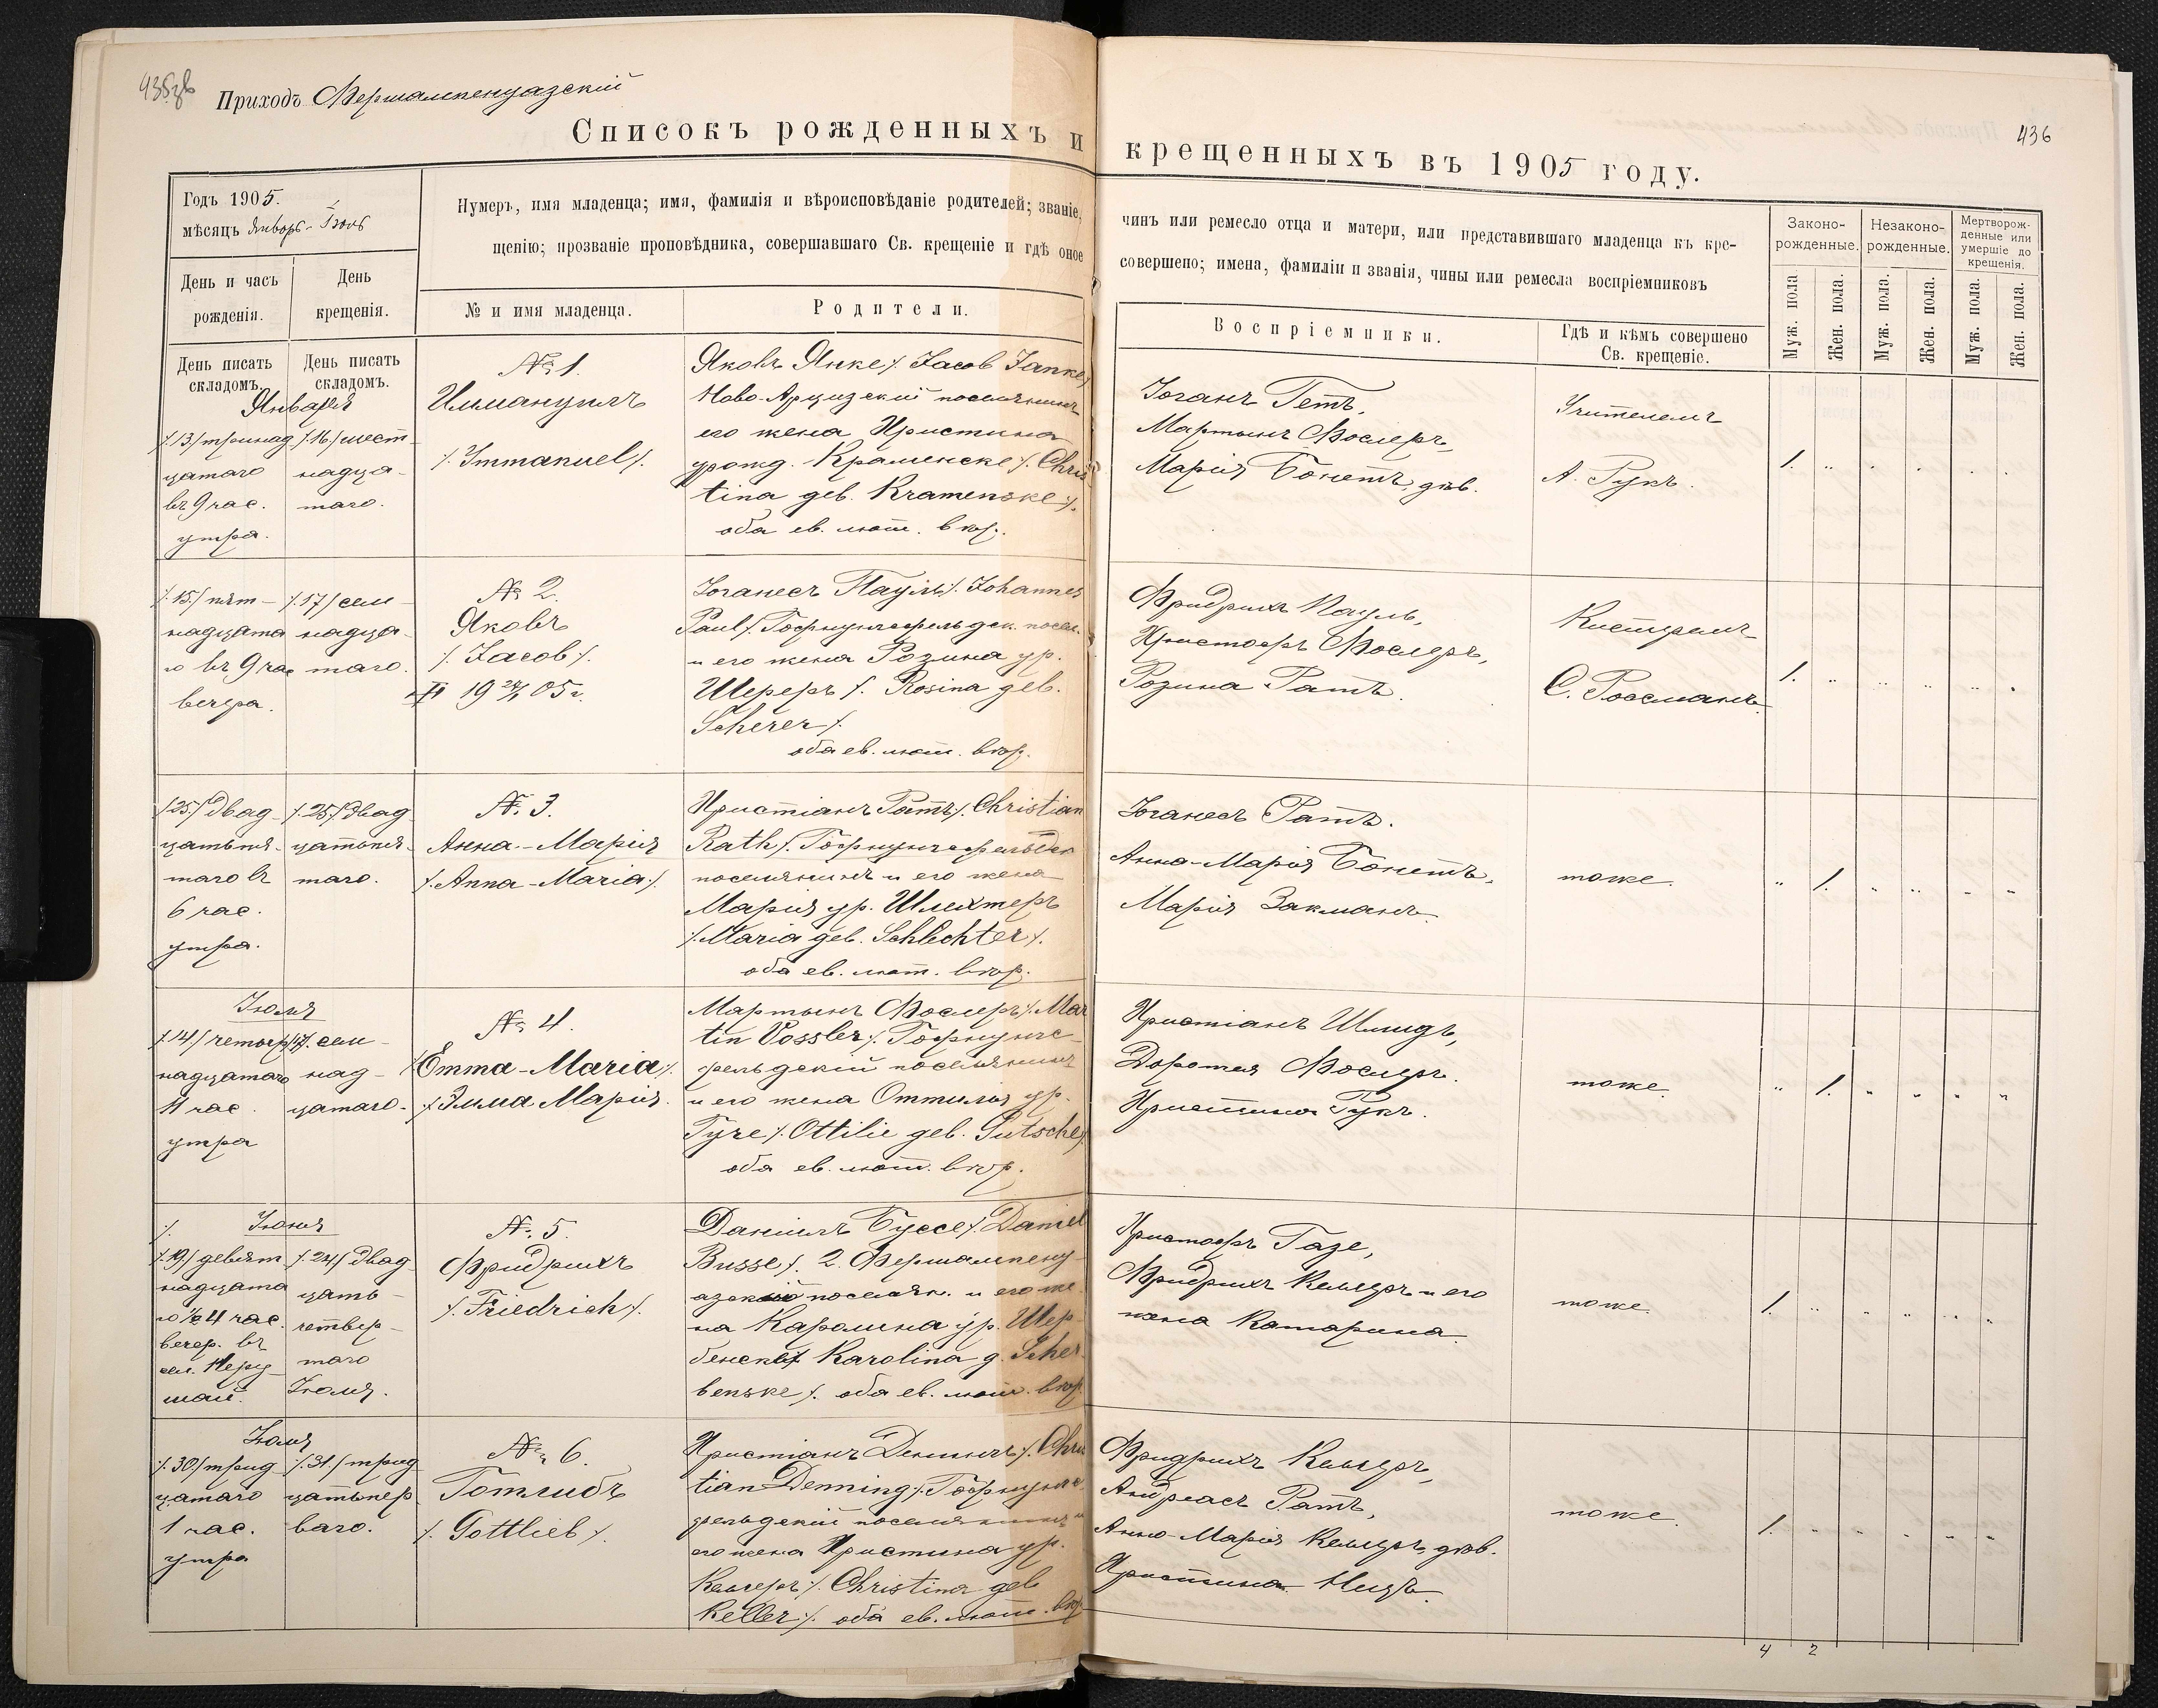 Приходъ Фершампенуазскій
436
Списокъ рожденныхъ и крещенныхъ въ 1905 году.
Годъ 1905.
мѣсяцъ Январь-Іюль
Нумеръ, имя младенца; имя, фамилія и вѣроисповѣданіе родителей; званіе, чинъ или ремесло отца и матери, или представившаго младенца къ кре-
щенію; прозваніе проповѣдника, совершавшаго Св. крещеніе и гдѣ оное совершено; имена, фамиліи и званія, чины или ремесла воспріемниковъ
Законо-
рожденные.
Незаконо-
рожденные.
Мертворож-
денные или
умершіе до
крещенія.
День и часъ
рожденія.
День
крещенія.
№ и имя младенца.
Родители.
Воспріемники.
Гдѣ и кѣмъ совершено
Св. крещеніе.
Муж. пола
Жен. пола.
Муж. пола.
Жен. пола.
Муж. пола.
Жен. пола.
День писать
складомъ.
День писать
складомъ.
Января
/.13/ тринад
цатаго
въ 9 час.
утра.
/.16/ шест-
надца-
таго.
№ 1.
Иммануилъ
/. Immanuel /.
Яковъ Янке /. Jacob Janke /
Ново-Арцизскій поселянинъ
его жена Христина
урожд. Краменске /. Chris
tina geb. Kramenske /.
оба ев. лют. вѣр.
Іоганъ Гетъ,
Мартынъ Фослеръ,
Марія Бонетъ, дѣв.
Учителемъ
А. Рукъ.
1.
/.15/ пят-
надцата
го въ 9 час
вечера.
/.17/ сем-
надца-
таго.
№ 2.
Яковъ
/. Jacob /.
Іоганесъ Пауль /. Johannes
Paul /. Гофнунгсфельдск. посел.
и его жена Розина ур.
Шереръ /. Rosina geb.
Scherer /.
оба ев. лют. вѣр.
Фридрихъ Пауль,
Христофъ Фослеръ,
Розина Ратъ.
Кистеромъ
С. Россманъ.
1.
/.25/ двад
цатьпя-
таго въ
6 час.
утра.
/.25/ двад
цатьпя-
таго.
№ 3.
Анна-Марія
/. Anna-Maria /.
Христіанъ Ратъ /. Christian
Rath /. Гофнунгсфельдск
поселянинъ и его жена
Марія ур. Шлехтеръ
/. Maria geb. Schlechter /.
оба ев. лют. вѣр.
Іоганесъ Ратъ.
Анна-Марія Бонетъ,
Марія Закманъ.
тоже.
1.
Іюля
/.14/ четыр
надцатаго
11 час.
утра
/17/. сем-
над-
цатаго.
№ 4.
/. Emma-Maria /.
/. Эмма Марія.
Мартынъ Фослеръ /. Mar
tin Vossler /. Гофнунгс-
фельдскій поселянинъ
и его жена Оттилія ур.
Гуче /. Ottilie geb. Gutsche /
оба ев. лют. вѣр.
Христіанъ Шмидъ,
Доротея Фослеръ.
Христина Рукъ.
тоже.
1.
Іюня
/.19/ девят
надцата
го ½ 4 час.
вечер. въ
/.24/ двад
цать-
четвер-
таго
Іюля.
№ 5
Фридрихъ
/. Friedrich /.
Даніилъ Буссе /. Daniel
Busse /. 2. Фершампену-
азскій поселян. и его же
на Каролина ур. Щер-
бенске /. Karolina g. Scher
benske /. оба ев. лют. вѣр.
Христофъ Газе,
Фридрихъ Келлеръ и его
жена Катарина.
тоже.
1.
Іюля
/.30/ трид
цатаго
1 час.
утра
/.31./ трид
цатьпер
ваго.
№ 6.
Готлибъ
/. Gottlieb /.
Христіанъ Деннингъ /. Chris
tian Denning /. Гофнунгс
фельдскій поселянинъ и
его жена Христина ур.
Келлеръ /. Christina geb
Keller /. оба ев. лют. вѣр
Фридрихъ Келлеръ,
Андреасъ Ратъ,
Анна-Марія Келлеръ, дѣв.
Христина Ницъ.
тоже.
1.
4 2